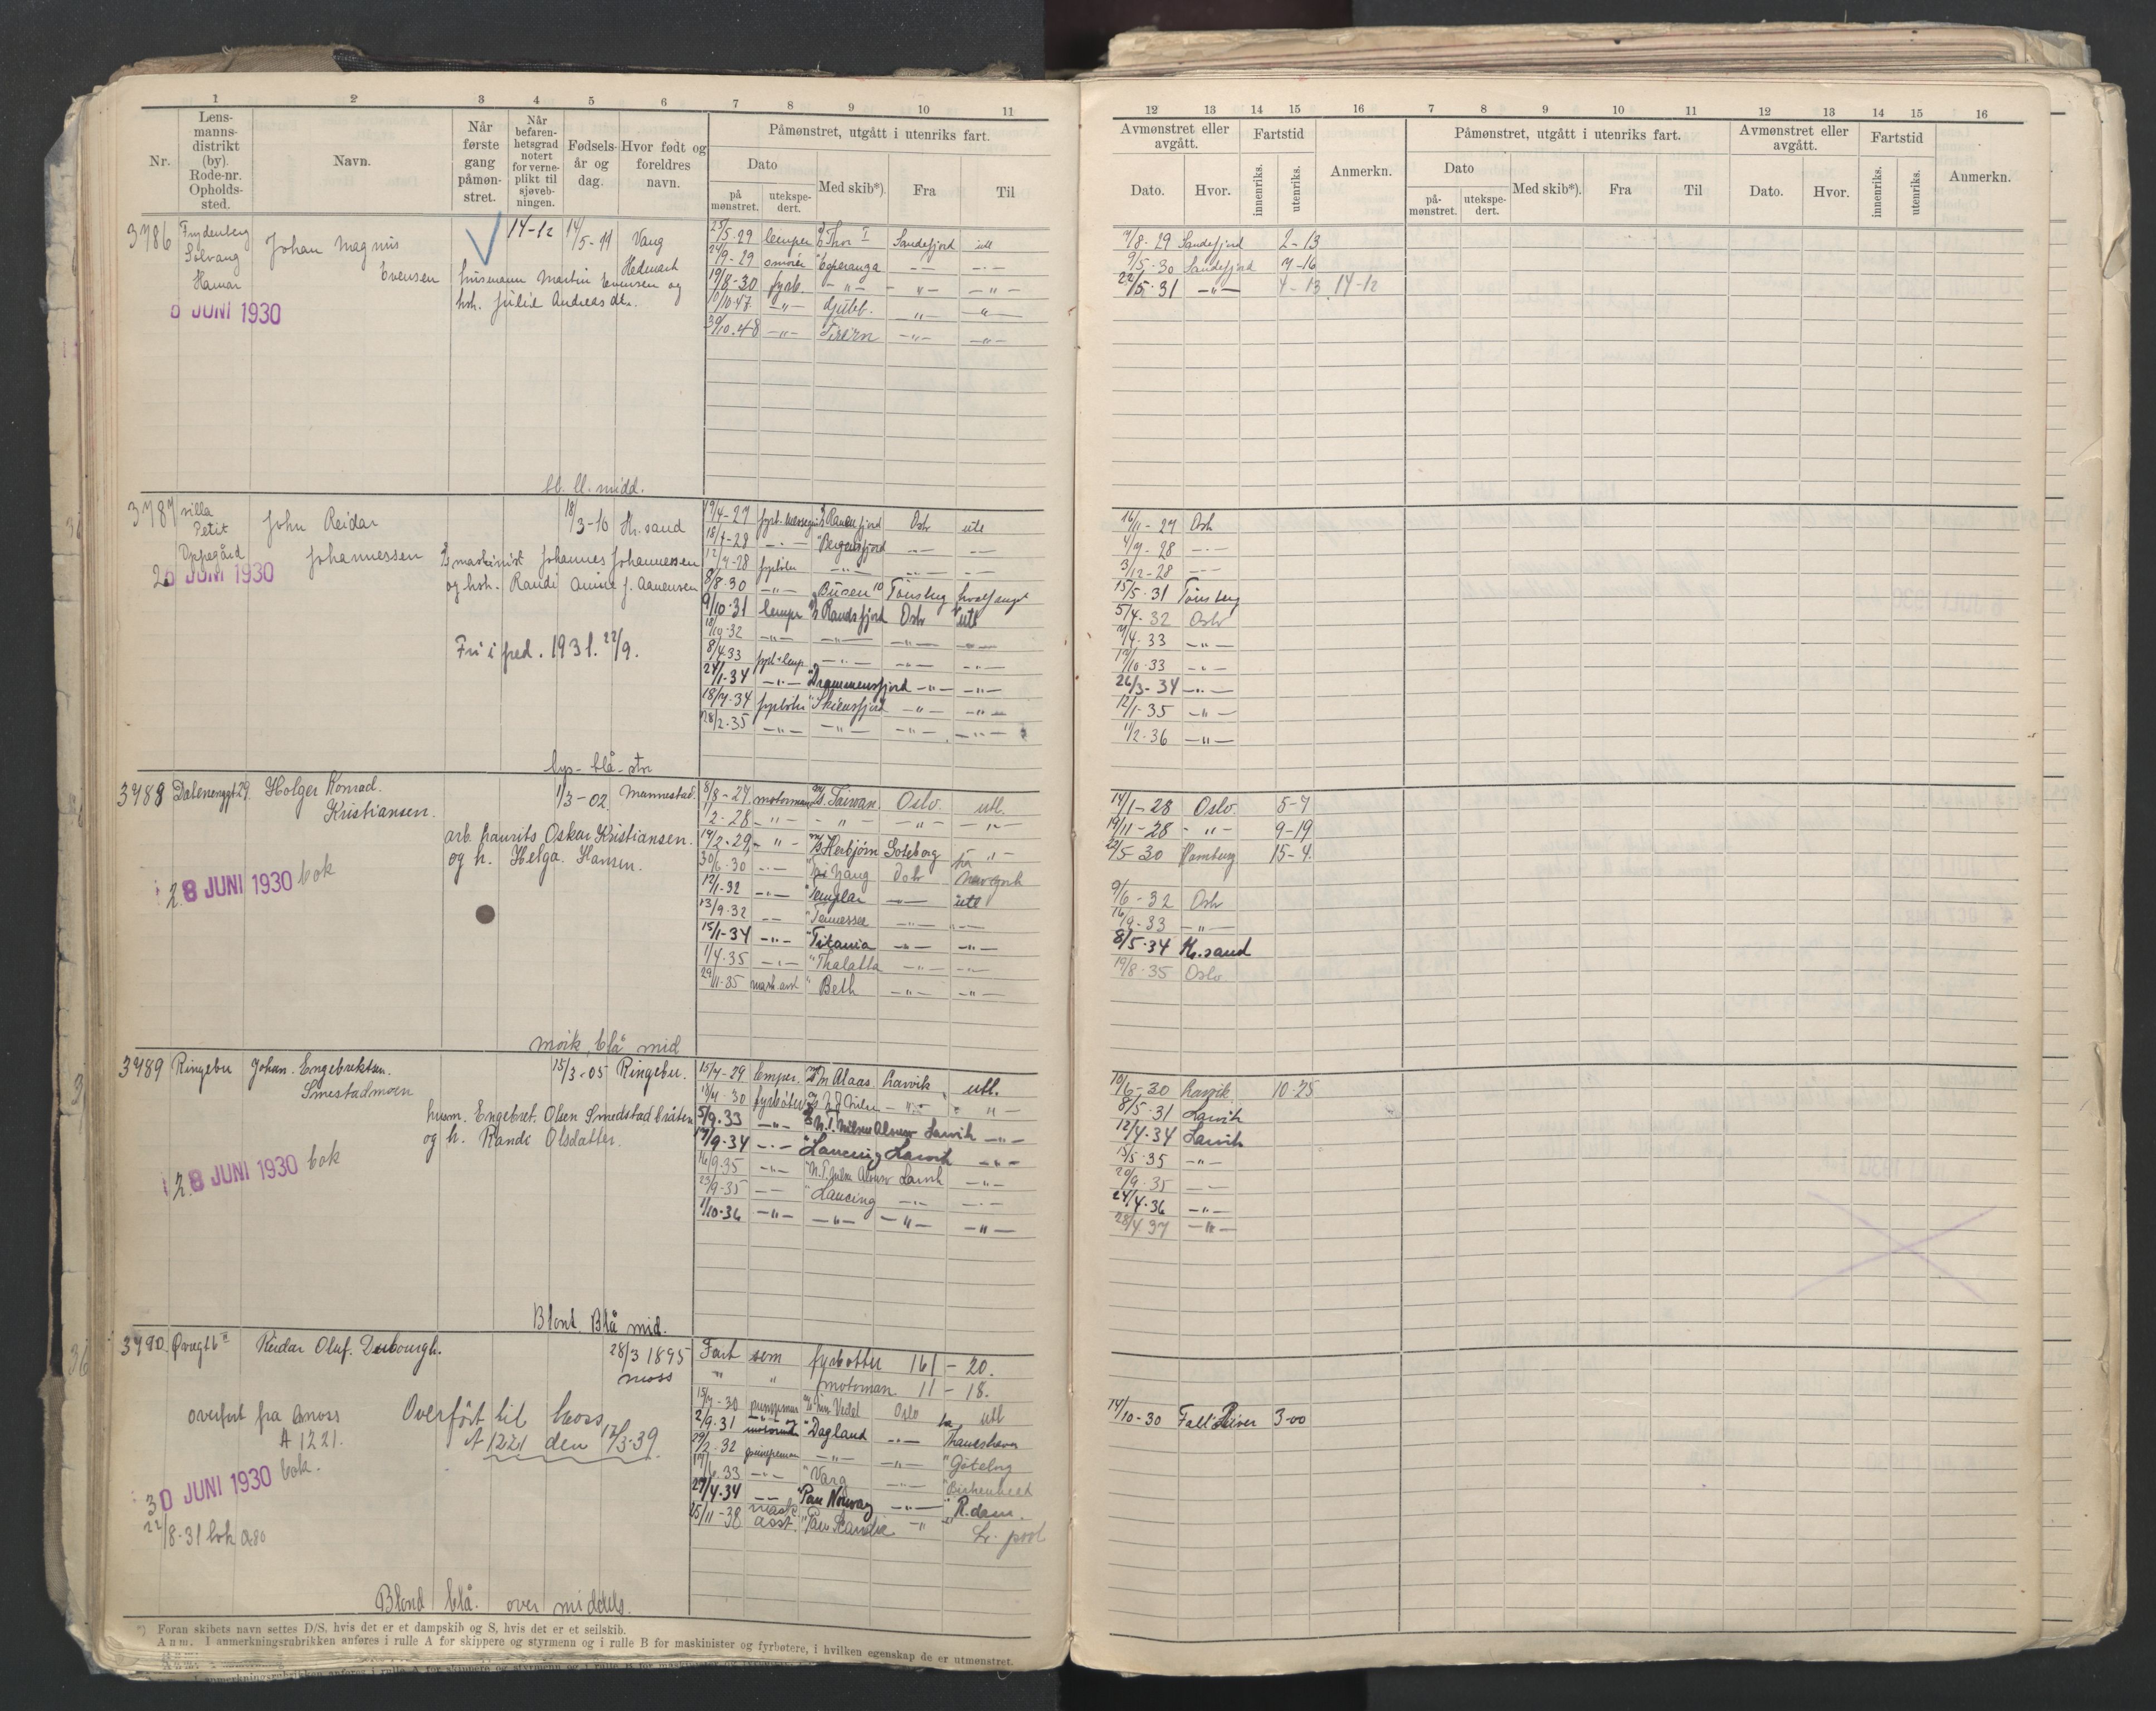 1 2 3 4 5 6 7 8 9 10 11
Nr. Lensmannsdistrikt (by). Rode-nr. Opholdssted. Navn. Når første gang påmønstret. Når befarenhetsgrad notert for verneplikt til sjøvebningen. Fødselsår og dag. Hvor født og foreldres navn.
Påmønstret, utgått i utenriks fart.
Dato Med skib*). Fra Til
på mønstret. utekspedert.
3786 Frydenberg Solvang Hamar
Johan Magnus Evensen
14-12 14/5-11 Vang Hedmark
husmann Martin Evensen og
hsh. Julie Andreas dtr.
6 JUNI 1930
25/5-29 lemper Thor I Sandefjord utl
24/9-29 Esperanza -"- -"-
19/8-30 fyrb. -"- -"- -"-
10/10.47 -"- -"- -"-
30/10.48 -"- -"- -"-
bl. bl. midd.
3787 villa Petit Oppegård
John Reidar Johannessen
18/3-10 Kr.sand
maskinist Johannes Johannessen
og hsh. Randi J. Aanensen
26 JUNI 1930
Fri i fred. 1931. 22/9.
19/4-27 Ranenfjord Oslo utl
18/7-28 -"- Bergensfjord -"- -"-
12/9-28 fyrbøter -"- -"- -"-
8/8.30 -"- Busen 10 Tønsberg hvalfangst
9/10.31 lemper Randsfjord Oslo utl
18/10-32 -"- -"- -"- -"-
8/4.33 -"- -"- -"-
24/1-34 -"- Drammensfjord -"- -"-
18/7.34 fyrbøter Skiensfjord -"- -"-
28/2.35 -"- -"- -"- -"-
lys - blå - str
3788 Dalenenggt 29. Holger Konrad.
Kristiansen.
1/3-02. Mannestad.
arb. Laurits Oskar Kristiansen.
og h. Helga. Hansen.
28 JUNI 1930 bok
8/8-27 motormann Taiwan. Oslo. utl.
1/2-28 -"- -"- -"- -"-
14/2-29 -"- Herbjørn Goteborg -"-
30/6-30 -"- Oslo
12/1-32 -"- Templar -"- utl
13/9.32 -"- Tennessee -"- -"-
15/1-34 -"- Titania -"- -"-
1/4.35 -"- Thalatta -"- -"-
29/11-35 mask. asst " Beth -"- -"-
mørk, blå mid
3789 Ringebu Johan. Engebretsen.
Smestadmoen
15/3-05 Ringebu.
husm. Engebret. Olsen Smedstadbråten
og h. Randi Olsdatter.
28 JUNI 1930 bok
15/7-29 lemper. Larvik utl.
fyrbøter -"- -"-
5/9.33 -"- N.T. Nielsen Alonso Larvik -"-
17/9.34 -"- Lancing Larvik -"-
16/9.35 -"- N.T. Nielsen Alonso Larvik -"-
23/9-35 -"- Lancing -"- -"-
1/10-36 -"- -"- -"- -"-
Blont. Blå mid.
3790. Reidar Oluf.
28/3 1895
moss
overført fra Moss
A 1221.
Overført til Moss
A 1221 den 17/3-39.
30 JUNI 1930 bok.
22/8-31 bok
Fart som fyrbøtter 161 - 20.
" " motoman. 11 - 18.
15/7-30 pumpeman Oslo utl
2/9.31 Dagland -"- Thameshaven
29/2.32 -"- -"- Göteborg
6.33 -"- Varg -"- Birkenhead
27/4.34 -"- Pan Norway -"- R.dam.
25/11-38 mask. asst. Pan Scandia -"- L. pool
Blond blå. over middels.
*) Foran skibets navn settes D/S, hvis det er et dampskib og S, hvis det er et seilskib.
Anm. I anmerkningsrubrikken anføres i rulle A for skippere og styrmenn og i rulle B for maskinister og fyrbøtere, i hvilken egenskap de er utmønstret.
12 13 14 15 16 7 8 9 10 11 12 13 14 15 16
Avmønstret eller avgått. Fartstid Anmerkn. Påmønstret, utgått i utenriks fart. Avmønstret eller avgått. Fartstid Anmerkn.
Dato. Hvor. innenriks. utenriks. Dato Med skib*). Fra Til Dato. Hvor. innenriks. utenriks.
påmønstret. utekspedert.
7/8-29 Sandefjord 2-13
9/5-30 Sandefjord 7-16
22/5-31 -"- 4-13 14-12
16/11-27 Oslo
4/9-28 -"-
3/12-28 -"-
15/5.31 Tønsberg
5/4-32 Oslo
7/4.33 -"-
17/10.33 -"-
26/3-34 -"-
12/1-35 -"-
11/2.36 -"-
14/1-28 Oslo. 5-7
19/11-28 -"- 9-19
22/5-30 Hamburg 15-4.
9/6-32 Oslo
16/9-33 -"-
8/5.34 Kr.sand
19/8.35 Oslo
10/6-30 Larvik. 10-25
8/5.31 Larvik
12/4-34 Larvik
13/5.35 -"-
20/9.35 -"-
24/4.36 -"-
28/4.37 -"-
14/10-30 Fall River 3-00